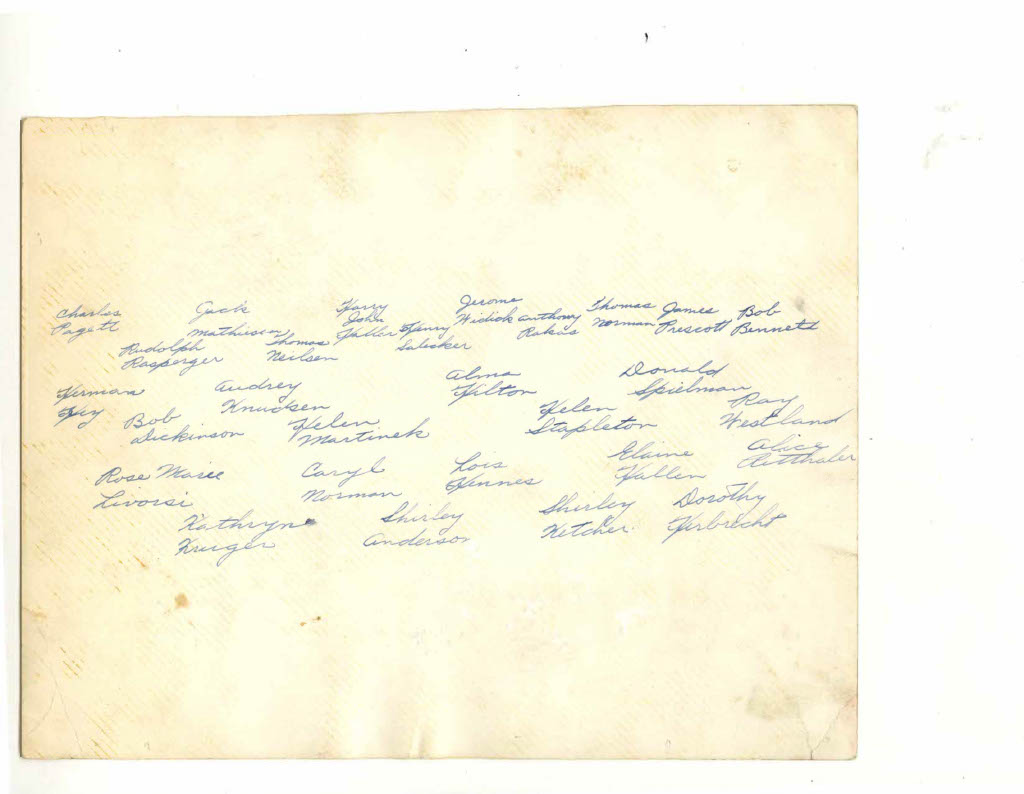 Charles Jack Harry Jerome Thomas James Bob
Pagett Mathiesen John Widick Anthony Norman Prescott Bennett
Rudolph Thomas Haller Henry Rakas
Rasperger Neilsen Salecker
Herman Audrey Alma Donald
Hey Knudsen Hilton Spielman
Bob Helen Helen Ray
Dickinson Martinek Stapleton Westland
Rose Marie Caryl Lois Elaine Alice
Livorsi Norman Hennes Hallen Ritthaler
Kathryn Shirley Shirley Dorothy
Kruger Anderson Ketcher Herbrecht